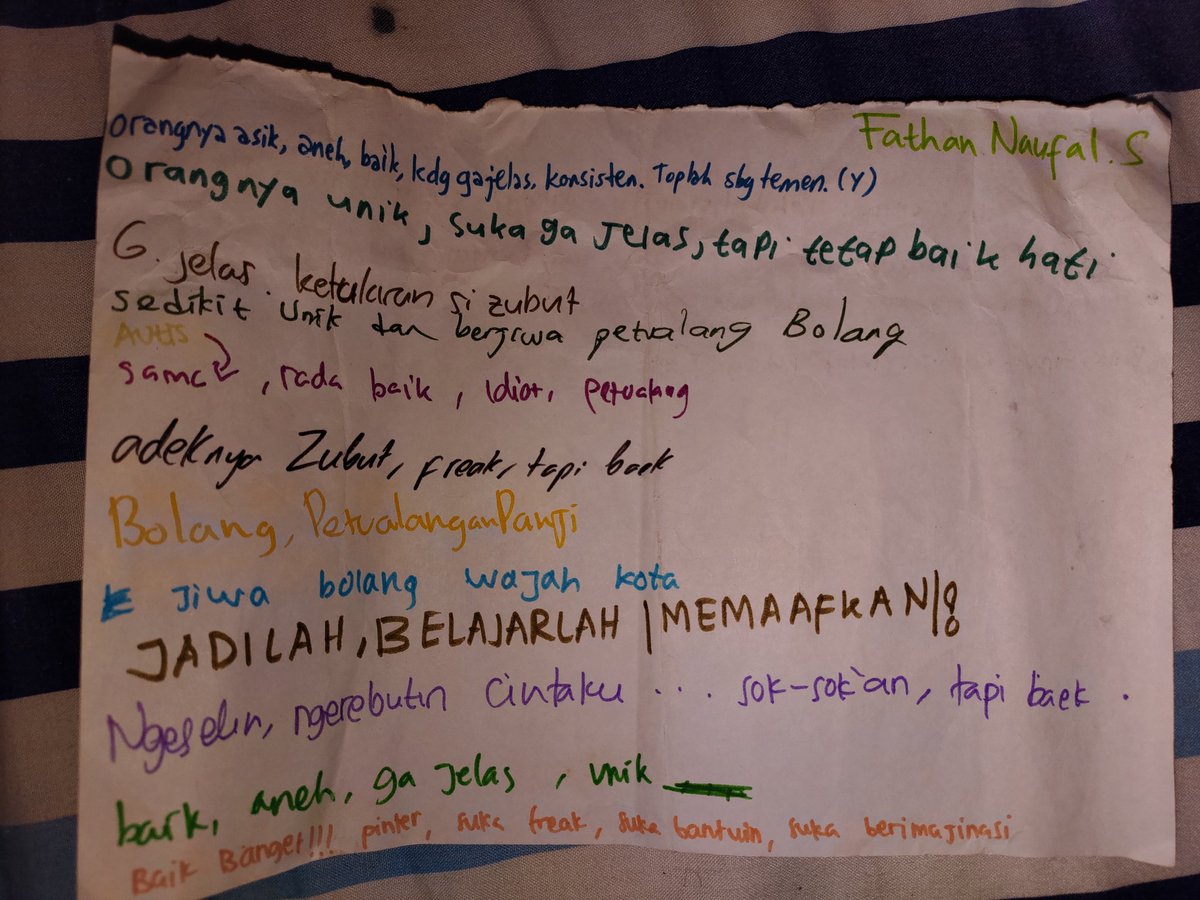 Fathan Naufal. S
orangnya asik, aneh, baik, kdg gajelas, konsisten. Toplah sbg temen. (Y)
Orangnya unik, suka ga jelas, tapi tetap baik hati.
G. jelas. ketularan si zubut
sedikit unik dan berjiwa petualang Bolang
Autis
sama, rada baik, idiot, petualang
adeknya Zubut, freak, tapi baek
Bolang, Petualangan Panji
jiwa bolang wajah kota
JADILAH, BELAJARLAH | MEMAAFKAN |
Ngeselin, ngerebutin Cintaku ... sok-sok'an, tapi baek.
baik, aneh, ga jelas, unik
Baik Banget!!! pinter, suka freak, suka bantuin, suka berimajinasi